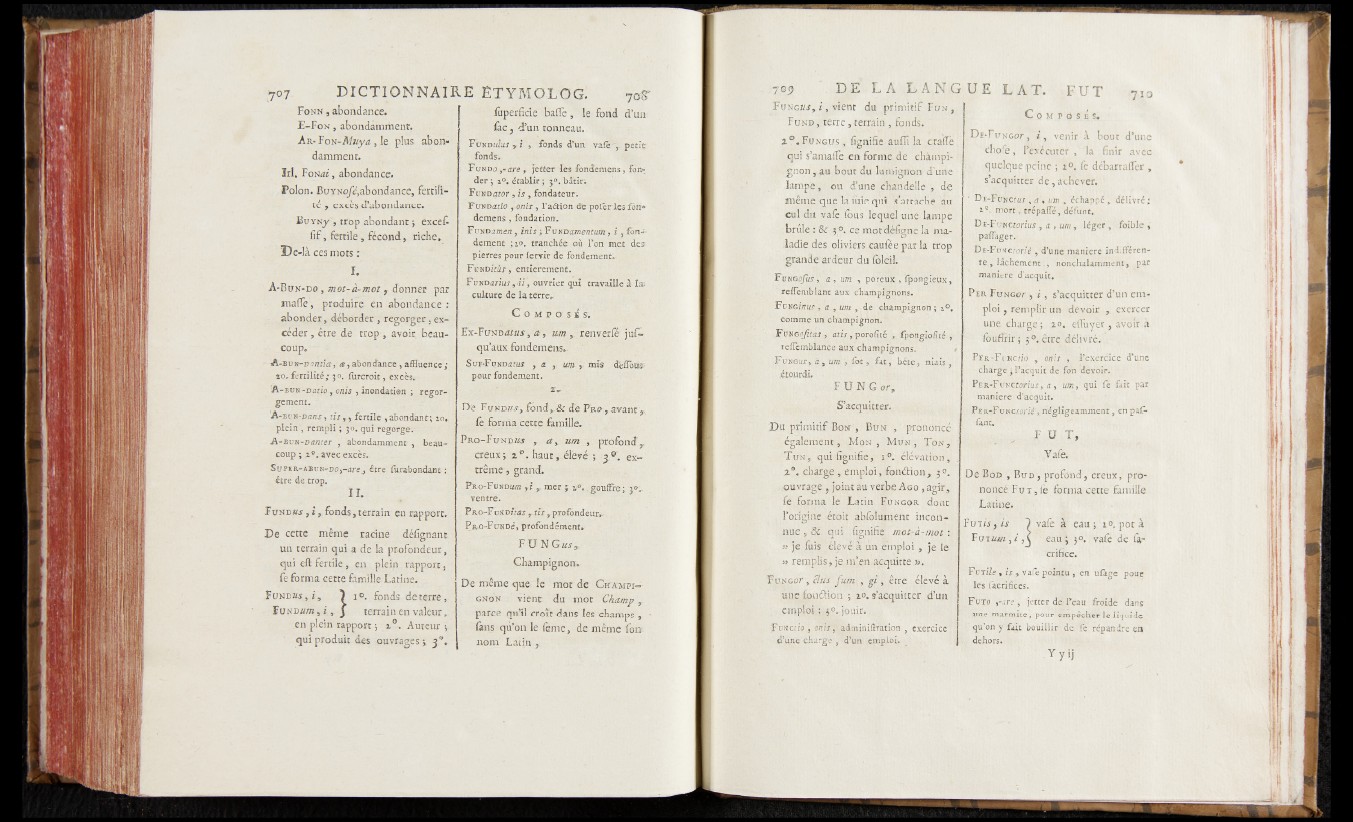 707 DICTIONNAIRE ÉTYMOLOG. 708
FONN, abondance.
E-FON, abondamment.
AR-FON-Muya, le plus abon-
damment.
Irl. FONAI, abondance.
Polon. BUYNOſć, abondance, fertili-
té, excès d'abondance.
BUYNY, trop abondant; exceſ-
ſif, fertile, fécond, riche.
De-là ces mots :
I.
A-BUN-DO, mot-à-mot, donner par
maſſe, produire en abondance :
abonder, déborder, regorger, ex-
céder, être de trop, avoir beau-
coup.
A-BUN-Dantia, æ, abondance, affluence;
2o. fertilité; 3o. ſurcroit, excès.
A-BUN-Datio, onis, inondation; regor-
gement.
A-BUN-Dans, tis, fertile, abondant; 2o.
plein, rempli; 3o. qui regorge.
A-BUN-Danter, abondamment, beau-
coup; 2o. avec excès.
SUPER-ABUN-DO,-are, être ſurabondant :
être de trop.
II.
FUNDUS, i, fonds, terrain en rapport.
De cette même racine déſignant
un terrain qui a de la profondeur,
qui eſt fertile, en plein rapport,
ſe forma cette famille Latine.
FUNDus, i, } 1o. fonds de terre,
FUNDum, i, } terrain en valeur,
en plein rapport; 2o. Auteur;
qui produit des ouvrages; 3o.
ſuperficie baſſe, le fond d'un
ſac, d'un tonneau.
FUNDulus, i, fonds d'un vaſe, petit
fonds.
FUNDO,-are, jetter les fondemens, fon-
der; 2o. établir; 3o. bâtir.
FUNDator, is, fondateur.
FUNDatio, onis, l'action de poſer les fon-
demens, fondation.
FUNDamen, inis; FUNDamentum, i, fon-
dement; 2o. tranchée où l'on met des
pierres pour ſervir de fondement.
FUNDitùs, entierement.
FUNDarius, ii, ouvrier qui travaille à la
culture de la terre.
COMPOSÉS.
EX-FUNDatus, a, um, renverſé juſ-
qu'aux fondemens.
SUF-FUNDatus, a, um, mis deſſous
pour fondement.
2.
De FUNDUS, fond, & de PRO, avant,
ſe forma cette famille.
PRO-FUNDUS, a, um, profond,
creux; 2o. haut, élevé; 3o. ex-
trême, grand.
PRO-FUNDum, i, mer; 2o. gouffre; 3o.
ventre.
PRO-FUNDitas, tis, profondeur.
PRO-FUNDè, profondément.
FUNGus,
Champignon.
De même que le mot de CHAMPI-
GNON vient du mot Champ,
parce qu'il croît dans les champs,
ſans qu'on le ſeme, de même ſon
nom Latin,
709 DE LA LANGUE LAT. FUT 710
FUNGUS, i, vient du primitif FUN,
FUND, terre, terrain, fonds.
2o. FUNGUS, ſignifie auſſi la craſſe
qui s'amaſſe en forme de champi-
gnon, au bout du lumignon d'une
lampe, ou d'une chandelle, de
même que la ſuie qui s'attache au
cul du vaſe ſous lequel une lampe
brûle : & 3o. ce mot déſigne la ma-
ladie des oliviers cauſée par la trop
grande ardeur du ſoleil.
FUNGoſus, a, um, poreux, ſpongieux,
reſſemblant aux champignons.
FUNGinus, a, um, de champignon; 2o.
comme un champignon.
FUNGoſitas, atis, poroſité, ſpongioſité,
reſſemblance aux champignons.
FUNGUS, a, um, ſot, fat, bête, niais,
étourdi.
FUNGor,
S'acquitter.
Du primitif BON, BUN, prononcé
également, MON, MUN, TON,
TUN, qui ſignifie, 1o. élévation,
2o. charge, emploi, fonction, 3o.
ouvrage, joint au verbe AGO, agir,
ſe forma le Latin FUNGOR dont
l'origine étoit abſolument incon-
nue, & qui ſignifie mot-à-mot :
» je ſuis élevé à un emploi, je le
» remplis, je m'en acquitte ».
FUNGOR, ctus ſum, gi, être élevé à
une fonction; 2o. s'acquitter d'un
emploi : 3o. jouir.
FUNCtio, onis, adminiſtration, exercice
d'une charge, d'un emploi.
COMPOSÉS.
DE-FUNGOR, i, venir à bout d'une
choſe, l'exécuter, la finir avec
quelque peine; 2o. ſe débarraſſer,
s'acquitter de, achever.
DE-FUNCtus, a, um, échappé, délivré;
2o. mort, trépaſſé, défunt.
DE-FUNCtorius, a, um, léger, foible,
paſſager.
DE-FUNCtoriè, d'une maniere indifféren-
te, lâchement, nonchalamment, par
maniere d'acquit.
PER-FUNGOR, i, s'acquitter d'un em-
ploi, remplir un devoir, exercer
une charge; 2o. eſſuyer, avoir à
ſouffrir; 3o. être délivré.
PER-FUNCtio, onis, l'exercice d'une
charge, l'acquit de ſon devoir.
PER-FUNCtorius, a, um, qui ſe fait par
maniere d'acquit.
PER-FUNCtoriè, négligeamment, en paſ-
ſant.
FUT,
Vaſe.
De BOD, BUD, profond, creux, pro-
noncé FUT, ſe forma cette famille
Latine.
FUTIS, is } vaſe à eau; 2o. pot à
FUTUM, i, } eau; 3o. vaſe de ſa-
crifice.
FUTile, is, vaſe pointu, en uſage pour
les ſacrifices.
FUTO,-are, jetter de l'eau froide dans
une marmite, pour empêcher le liquide
qu'on y fait bouillir de ſe répandre en
dehors.
Y y ij